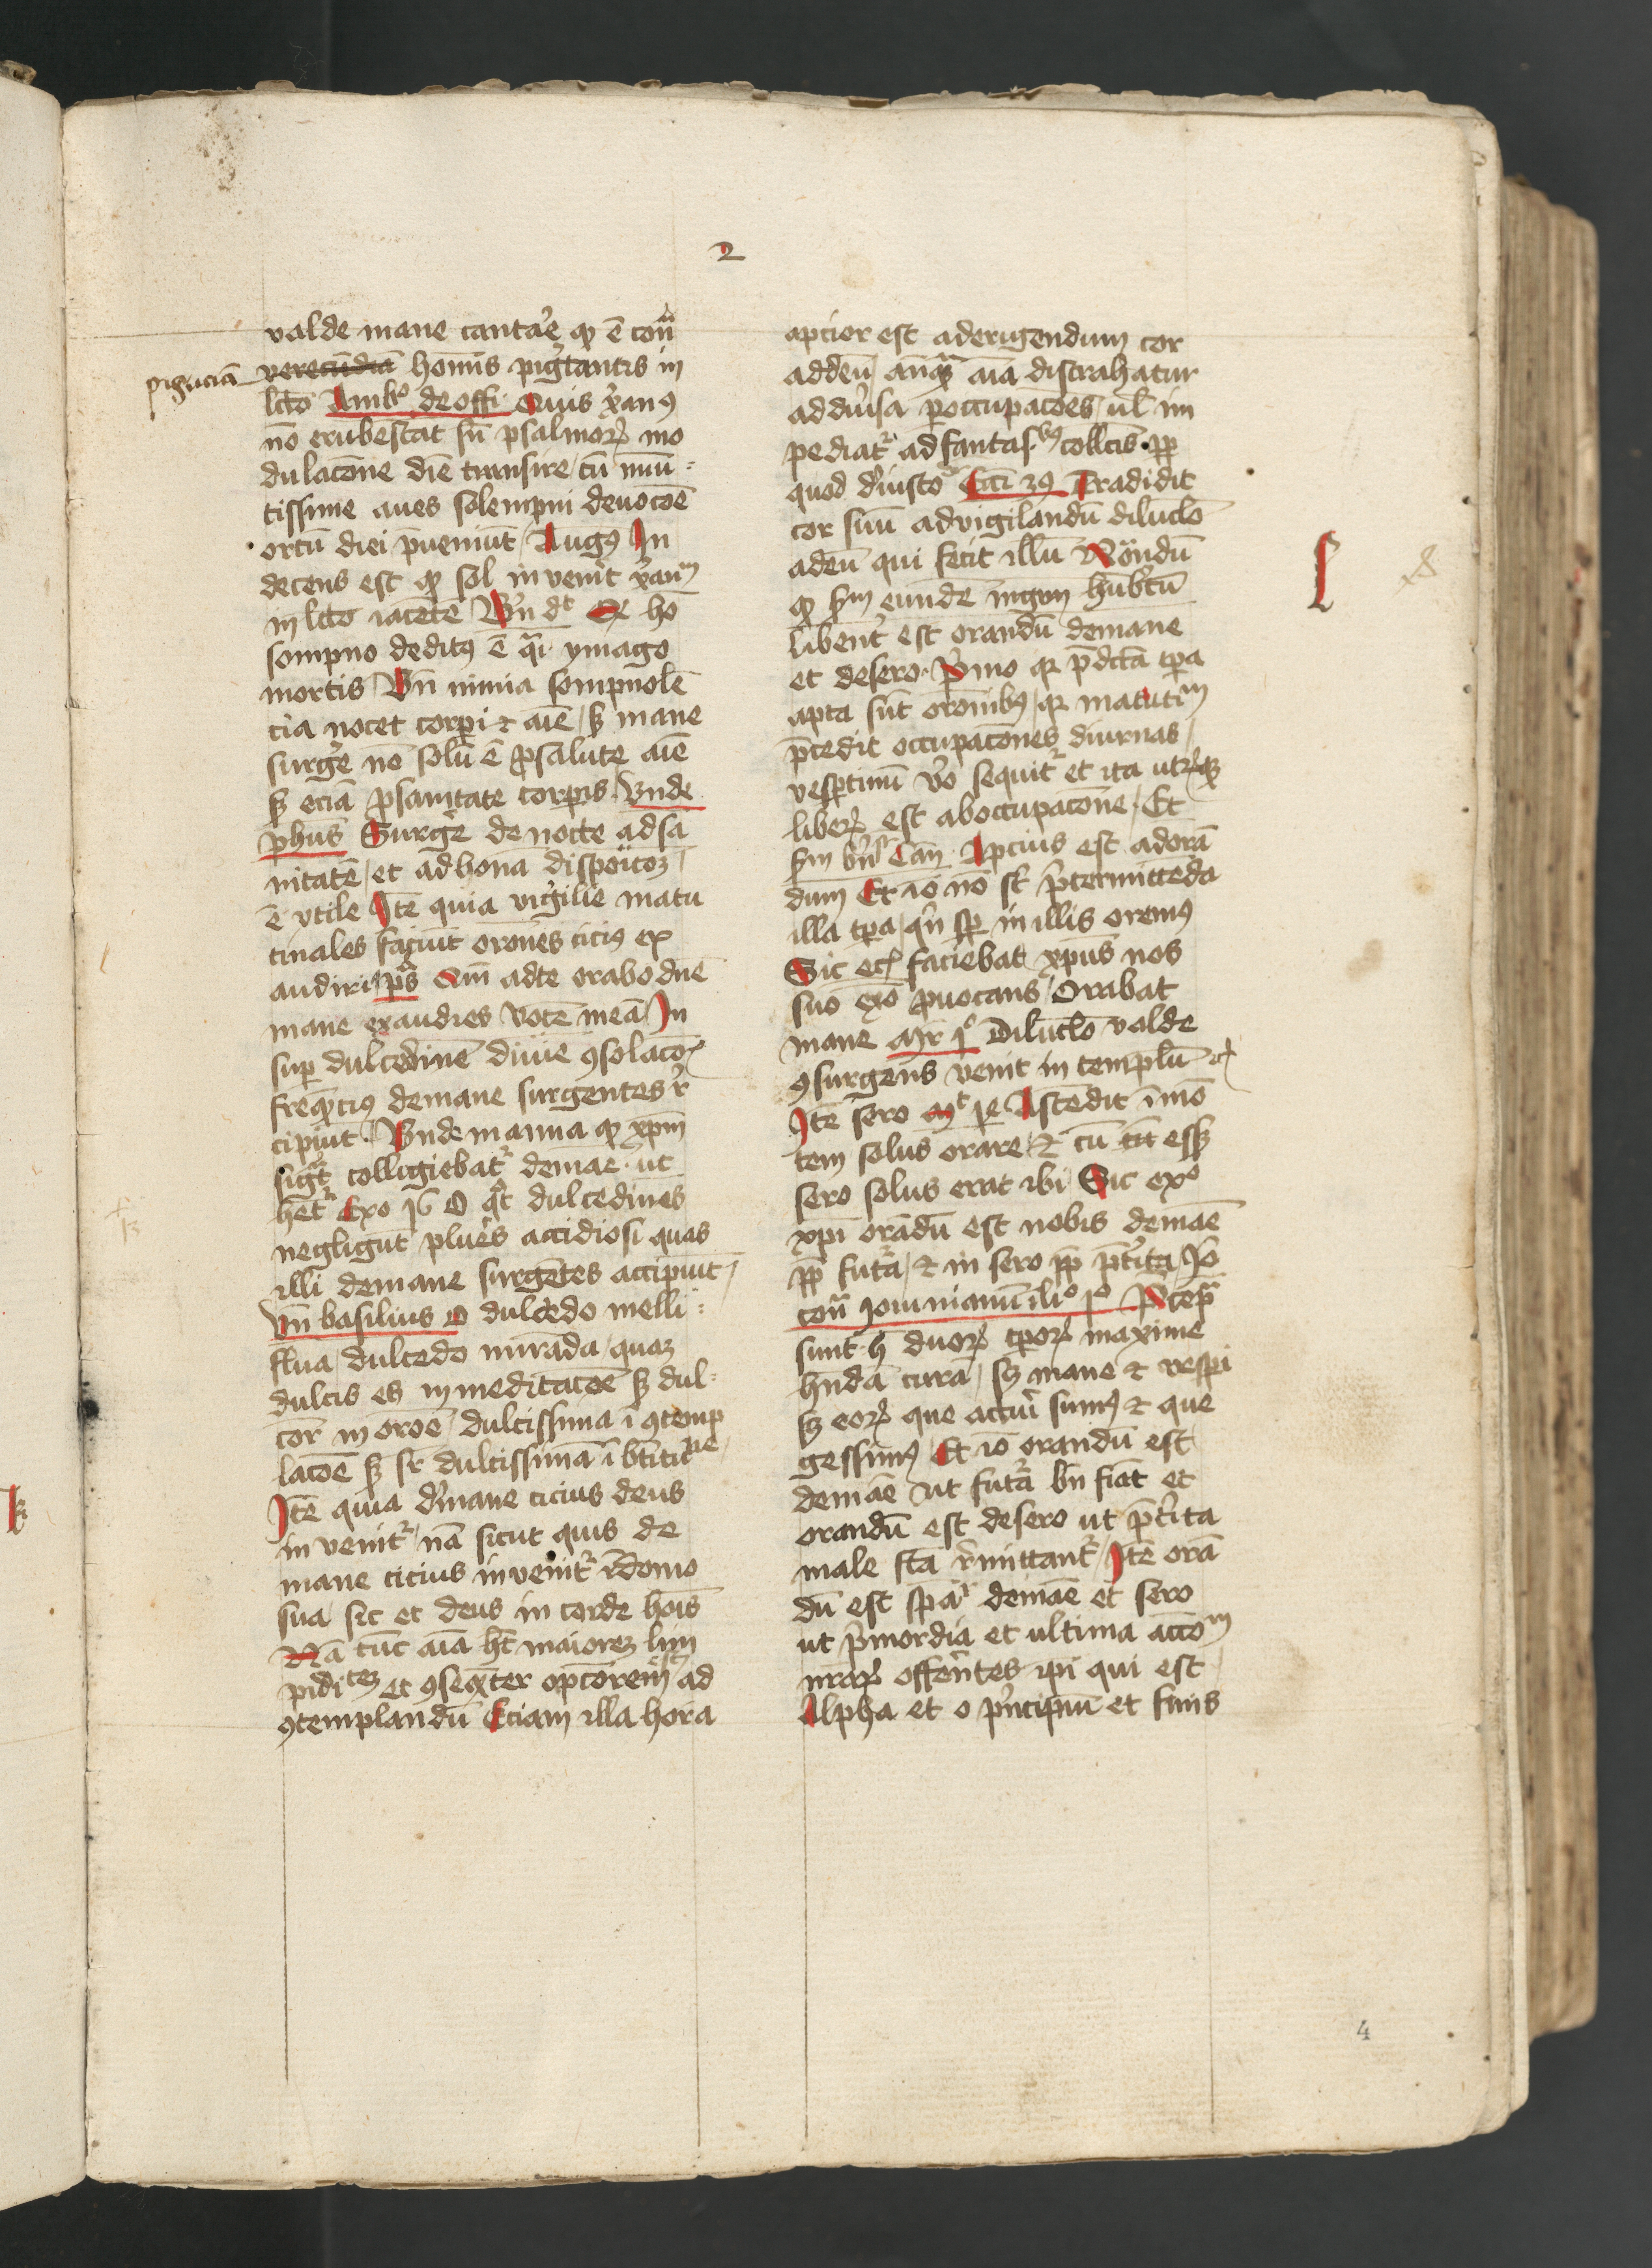 2
valde mane cantar̄e qͻ ē con̄ᵃ
pigriciā verecūdiā homīs pigr̄tantis in
lc̄to Ambᵒ de offi Quis xᵃ̄anꝰ
nō erubescat sn̄ psalmoꝝ mo
dulac̄one diē transire / cū minu=
tissime aues solempni deuoc̄oē
ortū diei p̄ueniūt / Augꝰ In
decens est qͻ sol inven̄it xᵃ̄anū
in lc̄to iacētē Vn̄ dᵗ Qꝛ hō
sompno deditꝰ ē qᵃi ymago
mortis Vn̄ nimia sompnolē
cia nocet corpi ⁊ aīe / sꝫ mane
surgēr nō solū ē ꝓ salute aīe
sꝫ eciā ꝓ sanitate corpis Vnde
ph̄us Surgēr de nocte ad sa
nitatē / et ad bonā disposicōꝫ
ē vtile Itē quia vigilie matu
tinales faciūt or̄ones ciciꝰ ex
audiri / pˢ Qm̄ ad te orabo dn̄e
mane exaudies vocē meā / In
suꝑ dulcedinē diuīe ꝯsolac̄oꝫ
freq̄nciꝰ de mane surgentes ꝑ
cipiūt Vnde manna qͻ xp̄m
sigᵗ colligiebatᵣ demāe · ut
hētᵣ Exo 16 O qͦt dulcedines
negligūt plūes accidiosi quas
illi de mane surgētes accipiūt
Vn̄ basilius O dulcedo melli=
flua / dulcedo mirāda / quaꝫ
dulcis es in meditac̄oē sꝫ dul=
cor̄ in or̄oē / dulcissima ī ꝯtemp
lac̄oē sꝫ sr̄ dulcissima ī btītu͞ᵈᵉ
Itē quia d̄ mane cicius deus
in venitᵣ / nā sicut quis de
mane cicius invenitᵣ ī domo
sua / sic et deus in corde hoīs
Nā tūc aīa hꝫ maiorē lim
pidiᵗᵉꝫ et ꝯseqn̄ter opc̄orem ad
ꝯtemplandū Eciam illa hora
apcior est ad erigendum cor
ad deū / anqᵃꝫ aīa distrahatur
ad diūsa p̄occupac̄oes / ul̄ im
pediatᵣ ad fantasᵇꝰ collc̄is · ꝓp
quod d̄ iusto Ecci 39 Tradidit
cor suū ad vigilandū dilūclo
ad deū qui fecit illū Nōndū
libent̄ est orandū de mane
et de sero · Pᵢmo qꝛ p̄dc̄ta tp̄a
apta sūt or̄onibꝰ / qꝛ matutiᵐ
p̄cedit occupac̄ones diurnas /
vesptinū v̄o sequitᵣ et ita utꝛqꝫ
liberꝫ est ab occupac̄one / Et
Apcius est ad orā
dum Et iō nō st̄ p̄termitteda
illa tp̄a / qn̄ sp̄ in illis oremꝰ
Sic ec̄ faciebat xp̄us nos
suo exo ꝓuocans / Orabat
mane Mr̄ 1ᵒ Dilūclo valde
ꝯsurgens venit in templū ⁊c
Itē sero Mᵗ 14 Ascēdit ī mō
tem solus orare / ⁊ cū fc̄m essꝫ
sero solus erat ibi Sic exᵒ
xp̄i orādū est nobis demāe
ꝓp futᵣa / ⁊ in sero ꝓp p̄t̄ita Jō
con̄ᵃ iouinianū li° 1ᵒ
sunt h duoꝝ tp̄oꝝ maxime
hn̄da cura / sꝫ mane ⁊ vespi
sꝫ eoꝝ que actuī sumꝰ ⁊ que
gessimꝰ Et iō orandū est
demāe ut futᵣa bn̄ fiāt et
orandū est de sero ut p̄t̄ita
male fc̄a r̄mittantᵣ / Itē orā
dū est demāe et sero
ut pᵢmordia et ultima acc̄oᵐ
nr̄aꝝ offerētes ip̄i qui est
Alpha et o pᵢncipiū et finis
4